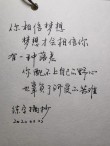 你相信梦想
梦想才会相信你
有一种落差
你配不上自己的野心
也辜负了所受的苦难